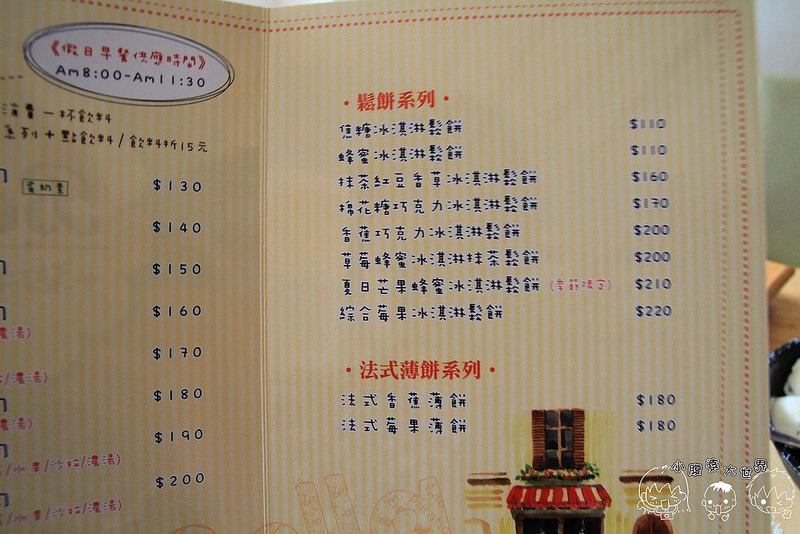 《假日早餐供應時間》
Am8:00-Am11:30
消費一杯飲料
系列+點飲料/飲料折15元
蛋奶素
$130
$140
$150
$160
濃湯)
$170
/濃湯)
$180
濃湯)
$190
/水果/沙拉/濃湯)
$200
/水果/沙拉/濃湯)
·鬆餅系列·
焦糖冰淇淋鬆餅 $110
蜂蜜冰淇淋鬆餅 $110
抹茶紅豆香草冰淇淋鬆餅 $160
棉花糖巧克力冰淇淋鬆餅 $170
香蕉巧克力冰淇淋鬆餅 $200
草莓蜂蜜冰淇淋抹茶鬆餅 $200
夏日芒果蜂蜜冰淇淋鬆餅(季節限定) $210
綜合莓果冰淇淋鬆餅 $220
·法式薄餅系列·
法式香蕉薄餅 $180
法式莓果薄餅 $180
小腹婆次世界